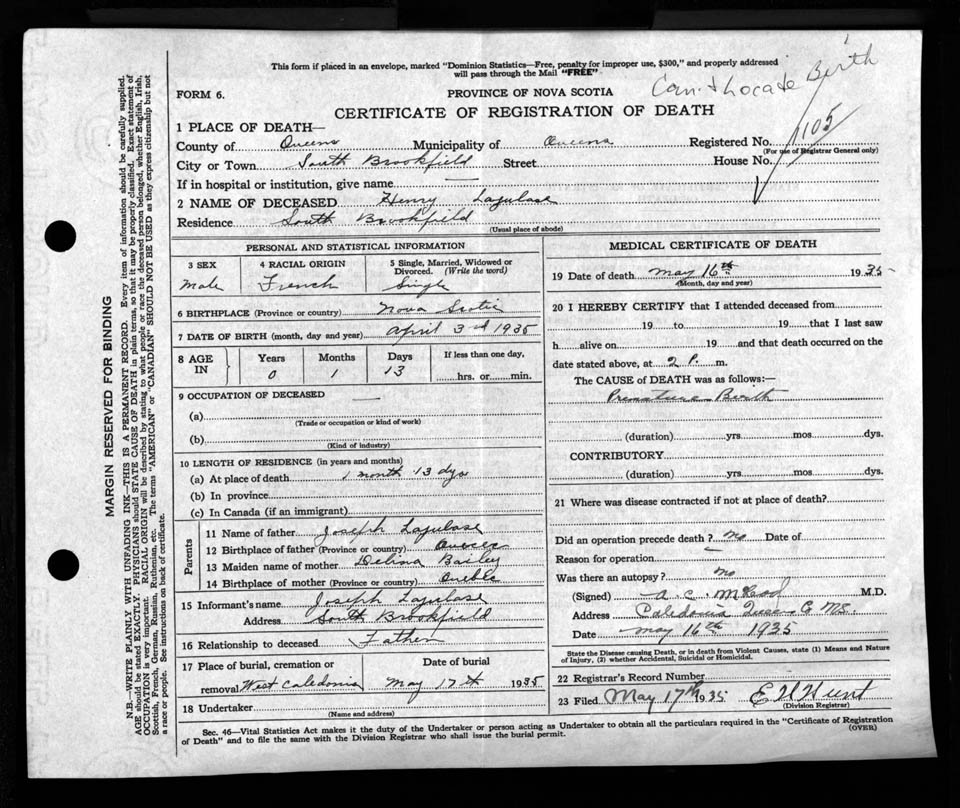 This form if placed in an envelope, marked "Dominion Statistics—Free, penalty for improper use, $300," and properly addressed
will pass through the Mail "FREE"
FORM 6.
PROVINCE OF NOVA SCOTIA
Can't Locate Birth
CERTIFICATE OF REGISTRATION OF DEATH
1 PLACE OF DEATH—
County of Queens Municipality of Queens Registered No. 1105
(For use of Registrar General only)
City or Town South Brookfield Street House No.
If in hospital or institution, give name
2 NAME OF DECEASED Henry Lajulase
Residence South Brookfield
(Usual place of abode)
PERSONAL AND STATISTICAL INFORMATION
3 SEX
Male
4 RACIAL ORIGIN
French
5 Single, Married, Widowed or
Divorced. (Write the word)
Single
6 BIRTHPLACE (Province or country) Nova Scotia
7 DATE OF BIRTH (month, day and year) April 3rd 1935
8 AGE IN
Years Months Days If less than one day,
0 1 13 hrs. or min.
9 OCCUPATION OF DECEASED
(a)
(Trade or occupation or kind of work)
(b)
(Kind of industry)
10 LENGTH OF RESIDENCE (in years and months)
(a) At place of death 1 month 13 dys
(b) In province
(c) In Canada (if an immigrant)
Parents
11 Name of father Joseph Lajulase
12 Birthplace of father (Province or country)
13 Maiden name of mother Delina Bailey
14 Birthplace of mother (Province or country)
15 Informant's name Joseph Lajulase
Address South Brookfield
16 Relationship to deceased Father
17 Place of burial, cremation or Date of burial
removal West Caledonia May 17th 1935
18 Undertaker
(Name and address)
MEDICAL CERTIFICATE OF DEATH
19 Date of death May 16th 1935
(Month, day and year)
20 I HEREBY CERTIFY that I attended deceased from
19 to 19 that I last saw
h alive on 19 and that death occurred on the
date stated above, at 2 P. m.
The CAUSE of DEATH was as follows:—
Premature Birth
(duration) yrs mos dys.
CONTRIBUTORY
(duration) yrs mos dys.
21 Where was disease contracted if not at place of death?
Did an operation precede death? no Date of
Reason for operation
Was there an autopsy? no
(Signed) A. C. McLeod M.D.
Address Caledonia Queens Co N.S.
Date May 16th 1935
State the Disease causing Death, or in death from Violent Causes, state (1) Means and Nature
of Injury, (2) whether Accidental, Suicidal or Homicidal.
22 Registrar's Record Number
23 Filed May 17th 1935 E H Hunt
(Division Registrar)
Sec. 46—Vital Statistics Act makes it the duty of the Undertaker or person acting as Undertaker to obtain all the particulars required in the "Certificate of Registration
of Death" and to file the same with the Division Registrar who shall issue the burial permit.
(OVER)
MARGIN RESERVED FOR BINDING
N.B.—WRITE PLAINLY WITH UNFADING INK—THIS IS A PERMANENT RECORD. Every item of information should be carefully supplied.
AGE should be stated EXACTLY. PHYSICIANS should STATE CAUSE OF DEATH in plain terms, so that it may be properly classified. Exact statement of
OCCUPATION is very important. RACIAL ORIGIN will be described by stating to what people or race the deceased person belonged, whether English, Irish,
Scottish, French, German, Russian, Ruthenian, etc. The terms "AMERICAN" or "CANADIAN" SHOULD NOT BE USED as they express citizenship but not
a race or people. See instructions on back of certificate.